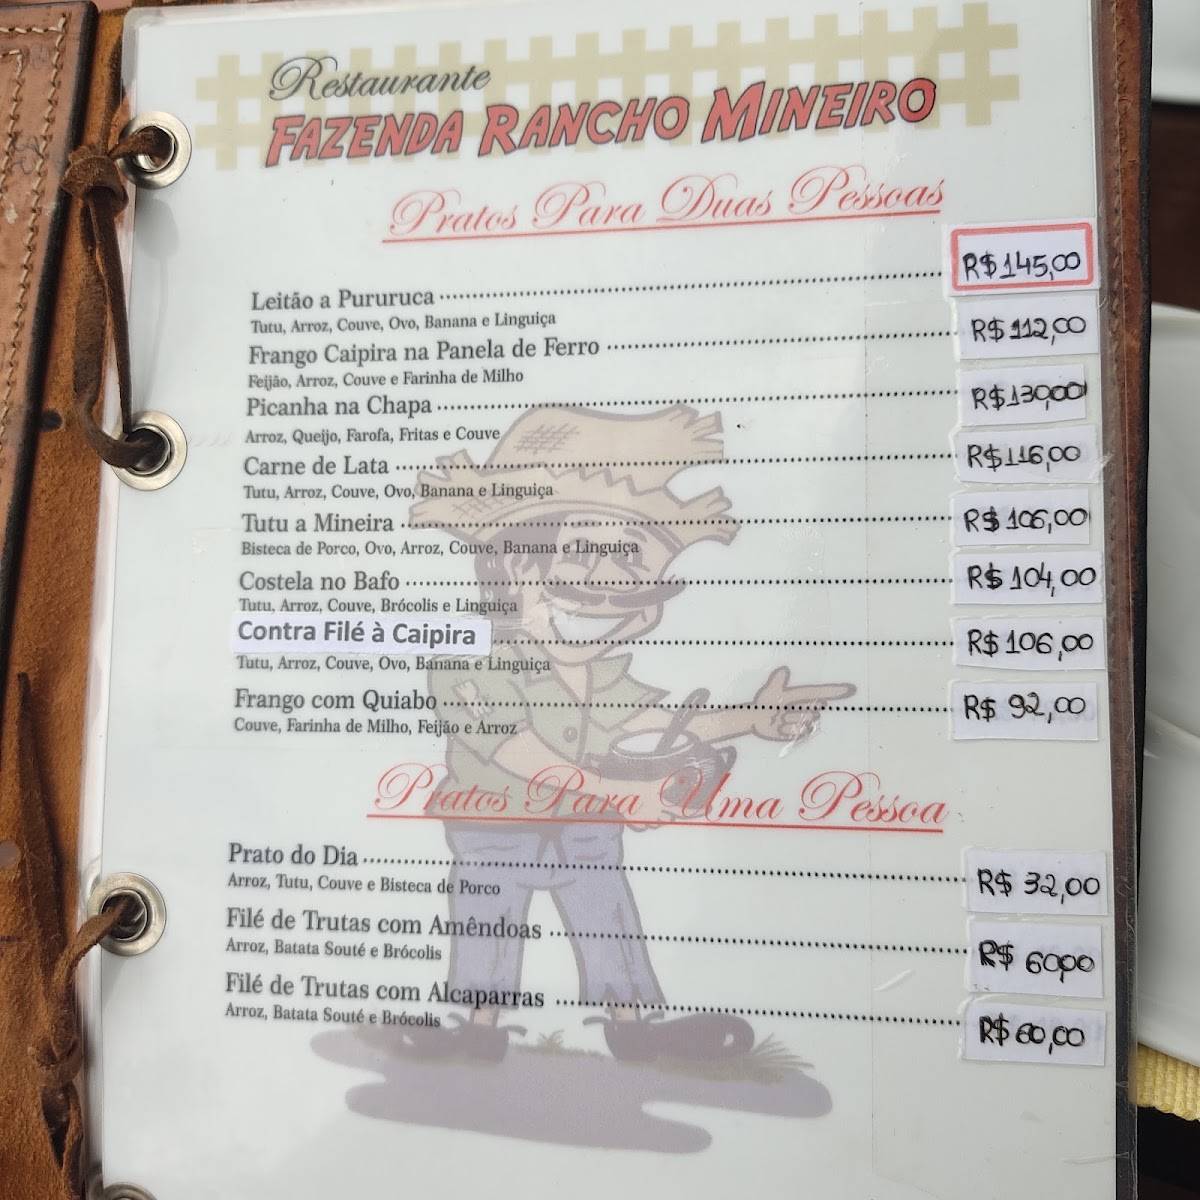 Restaurante
FAZENDA RANCHO MINEIRO
Pratos Para Duas Pessoas
Leitão a Pururuca R$ 145,00
Tutu, Arroz, Couve, Ovo, Banana e Linguiça
Frango Caipira na Panela de Ferro R$ 112,00
Feijão, Arroz, Couve e Farinha de Milho
Picanha na Chapa R$ 130,00
Arroz, Queijo, Farofa, Fritas e Couve
Carne de Lata R$ 116,00
Tutu, Arroz, Couve, Ovo, Banana e Linguiça
Tutu a Mineira R$ 106,00
Bisteca de Porco, Ovo, Arroz, Couve, Banana e Linguiça
Costela no Bafo R$ 104,00
Tutu, Arroz, Couve, Brócolis e Linguiça
Contra Filé à Caipira R$ 106,00
Tutu, Arroz, Couve, Ovo, Banana e Linguiça
Frango com Quiabo R$ 92,00
Couve, Farinha de Milho, Feijão e Arroz
Pratos Para Uma Pessoa
Prato do Dia R$ 32,00
Arroz, Tutu, Couve e Bisteca de Porco
Filé de Trutas com Amêndoas R$ 60,00
Arroz, Batata Souté e Brócolis
Filé de Trutas com Alcaparras R$ 60,00
Arroz, Batata Souté e Brócolis